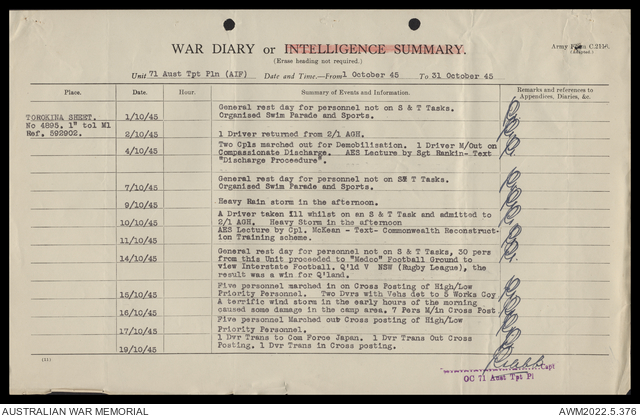 WAR DIARY or INTELLIGENCE SUMMARY.
(Erase heading not required.)
Army Form C.2118.
(Adapted.)
Unit 71 Aust Tpt Pln (AIF) Date and Time.—From 1 October 45 To 31 October 45
Place. Date. Hour. Summary of Events and Information. Remarks and references to Appendices, Diaries, &c.
TOROKINA SHEET.
No 4895. 1" to1 Ml
Ref. 592902.
1/10/45 General rest day for personnel not on S & T Tasks.
Organised Swim Parade and Sports.
2/10/45 1 Driver returned from 2/1 AGH.
4/10/45 Two Cpls marched out for Demobilisation. 1 Driver M/Out on
Compassionate Discharge. AES Lecture by Sgt Rankin- Text
"Discharge Proceedure".
7/10/45 General rest day for personnel not on S& T Tasks.
Organised Swim Parade and Sports.
9/10/45 Heavy Rain storm in the afternoon.
10/10/45 A Driver taken ill whilst on an S & T Task and admitted to
2/1 AGH. Heavy Storm in the afternoon
11/10/45 AES Lecture by Cpl. McKean - Text- Commonwealth Reconstruct-
ion Training scheme.
14/10/45 General rest day for personnel not on S & T Tasks, 30 pers
from this Unit proceeded to "Medco" Football Ground to
view Interstate Football. Q'ld V NSW (Rugby League), the
result was a win for Q'land.
15/10/45 Five personnel marched in on Cross Posting of High/Low
Priority Personnel. Two Dvrs with Vehs det to 5 Works Coy
16/10/45 A terrific wind storm in the early hours of the morning
caused some damage in the camp area. 7 Pers M/in Cross Post
17/10/45 Five personnel Marched out Cross posting of High/Low
Priority Personnel.
19/10/45 1 Dvr Trans to Com Force Japan. 1 Dvr Trans Out Cross
Posting. 1 Dvr Trans in Cross posting.
Capt
OC 71 Aust Tpt Pl
AUSTRALIAN WAR MEMORIAL
AWM2022.5.376